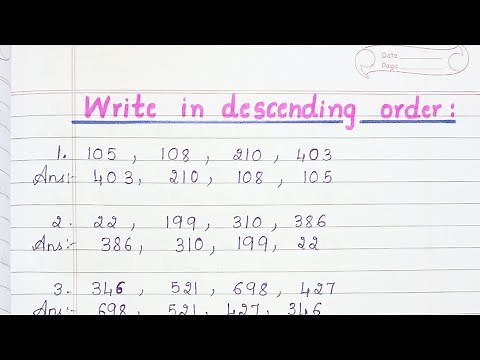 Date
Page
Write in descending order:
1. 105, 108, 210, 403
Ans:- 403, 210, 108, 105
2. 22, 199, 310, 386
Ans:- 386, 310, 199, 22
3. 346, 521, 698, 427
Ans:- 698, 521, 427, 346